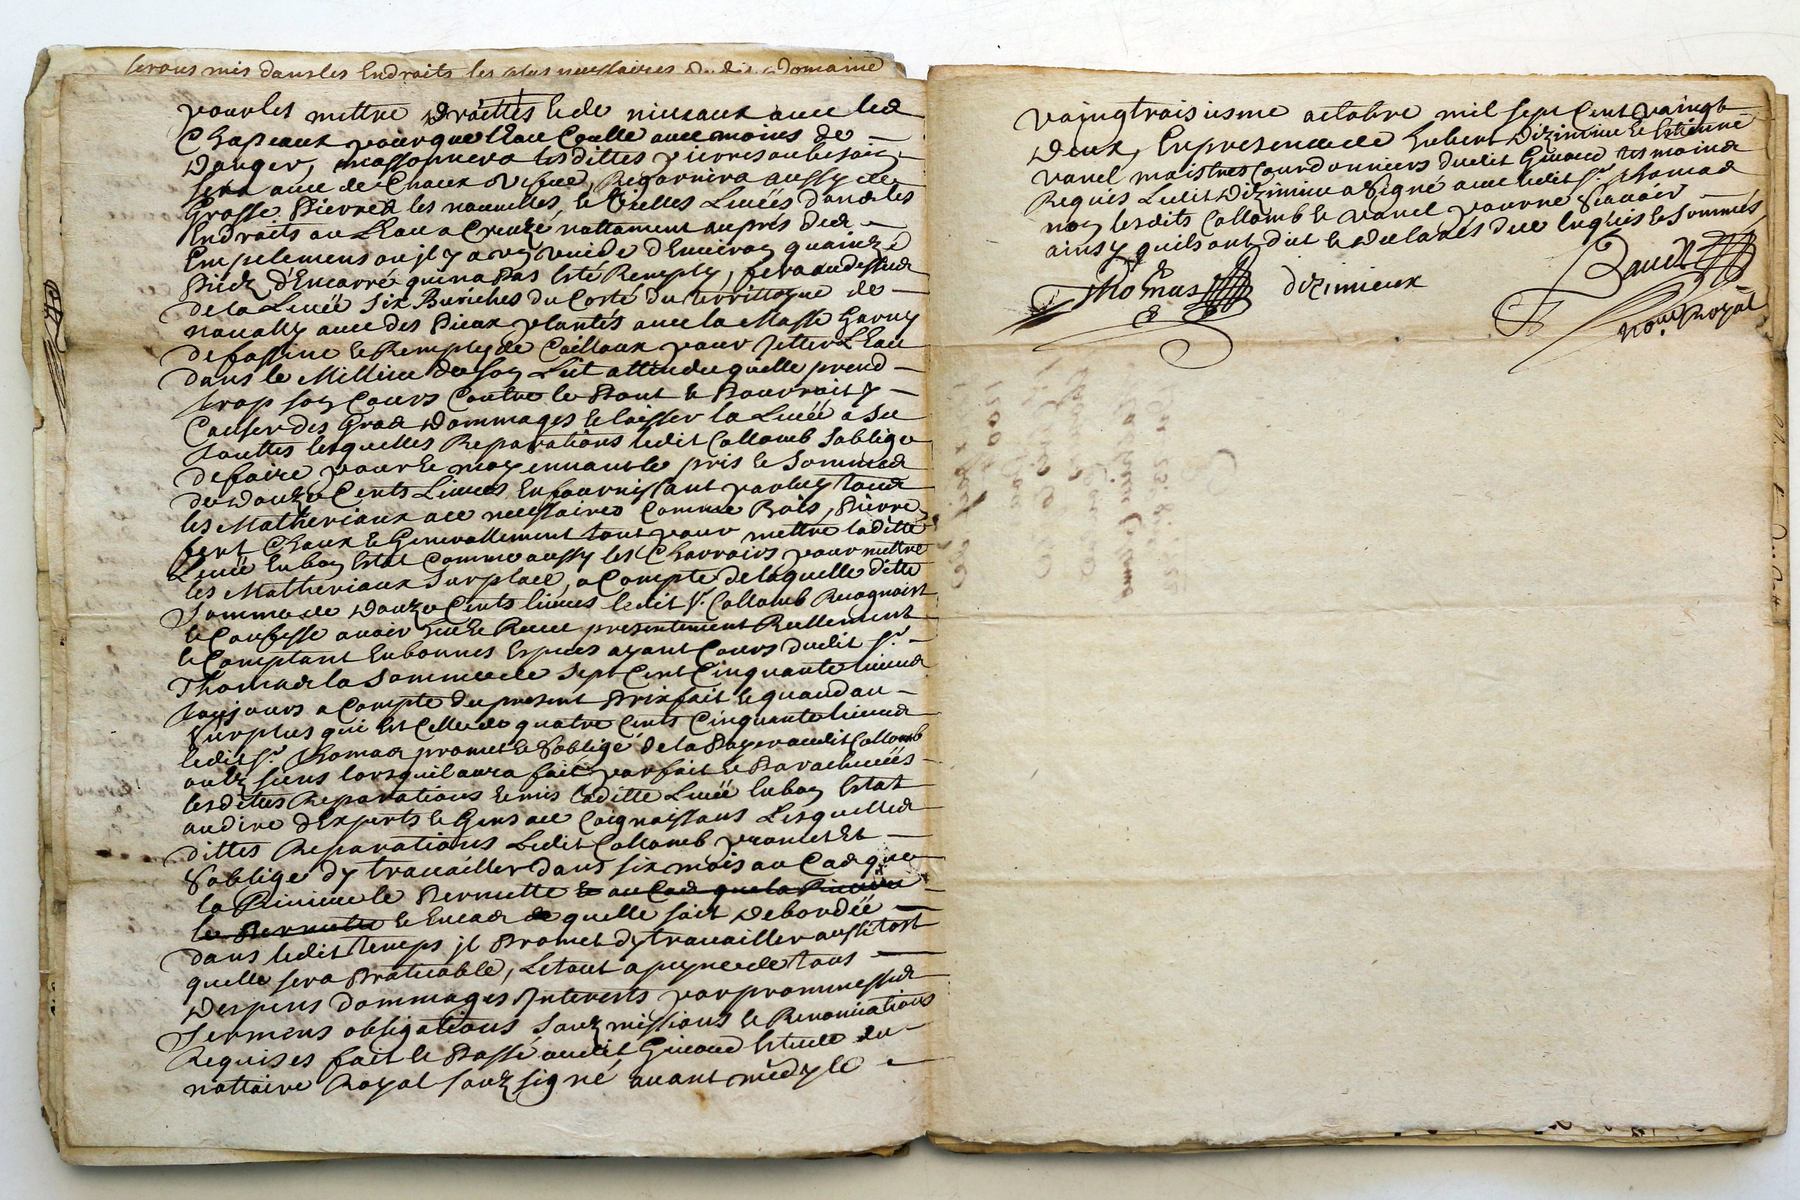 serons mis dans les Endroits les plus necessaires dudit Domaine
pour les mettre droittes et de niueaux auec les
Chapeaux pourque l'Eau Coulle auec moins de
Danger, massonnera lesdittes pierres au besoin
sera auec de Chaux Regarnira aussy de
Grosse Pierres les nouuelles, et Vielles Leuées dans les
Endroits ou l'Eau a Creuzé nottament auprés des
Empelemens ou il y a vn vuide d'Enuiron quainze
Piedz d'Encarré qui na Pas Esté Remply, fera au dessus
de la Leuée six Buriches du Costé du territtoyre de
naually auec des Pieux plantés auec la Masse Garny
de fassine et Remply de Cailloux pour Jetter L'Eau
dans le Millieu de son Lit attendu quelle prend
trop son Cours Contre le Pont et Pourroit y
Causer des Grads Dommages et laisser la Leuée a Sec
touttes lesquelles Reparations ledit Collomb s'oblige
de faire pour et moyennant le pris et Sommes
de Douze Cents Liures En fournissant par luy tous
les Matheriaux ace necessaires Comme Bois, Pierre
fert Chaux et Generallement tout pour mettre laditte
Leuée En bon Estat Comme aussy les Charrois pour mettre
les Matheriaux Sur place, a Compte de laquelle ditte
Somme de Douze Cents liures ledit Sr. Collomb Recognoist
et Confesse auoir Eu et Receu presentement Reellement
et Comptant En bonnes Especes ayant Cours dudit Sr.
Thomas la Somme de Sept Cent Cinquante liures
tousjours a Compte du present Prixfait et quand au
Surplus qui Est Celle de quatre Cents Cinquante liures
ledit Sr. Thomas promet et S'oblige de la Payer audit Collomb
ou Ez siens lorsquil aura fait parfait et Paracheuées
lesdittes Reparations et mis laditte Leuée En bon Estat
au dire d'Experts et Gens ace Coignoissans Lesquelles
dittes Reparations Ledit Collomb promet Et
s'oblige dy trauailler dans six mois au Cas que
la Riuiere le Permette et au Cas que la Riuiere
le Permette et En cas de quelle soit Debordée
dans ledit temps jl Promet dy trauailler aussitost
quelle sera Praticable, Le tout a peyne de tous
Despens dommages Interests par prommesses
Sermens obligations Soubzmissions et Renonciations
Requises fait et Passé audit Giuord Estude du
nottaire Royal soubzsigné auant midy le
vaingtroisiesme octobre mil sept Cent vaingt
Deux, En presence de Hubert Dizimieu et Estienne
Vanel maistres Cordonniers dudit Giuord tesmoins
Requis Ledit Dizimieu a Signé auec ledit Sr. Thomas
non lesdits Collomb et Vanel pour ne Scauoir
ainsy quils ont dit et declarés de ce Enquis et Sommés
Thomas
dizimieux
Baudt
nore. Royal